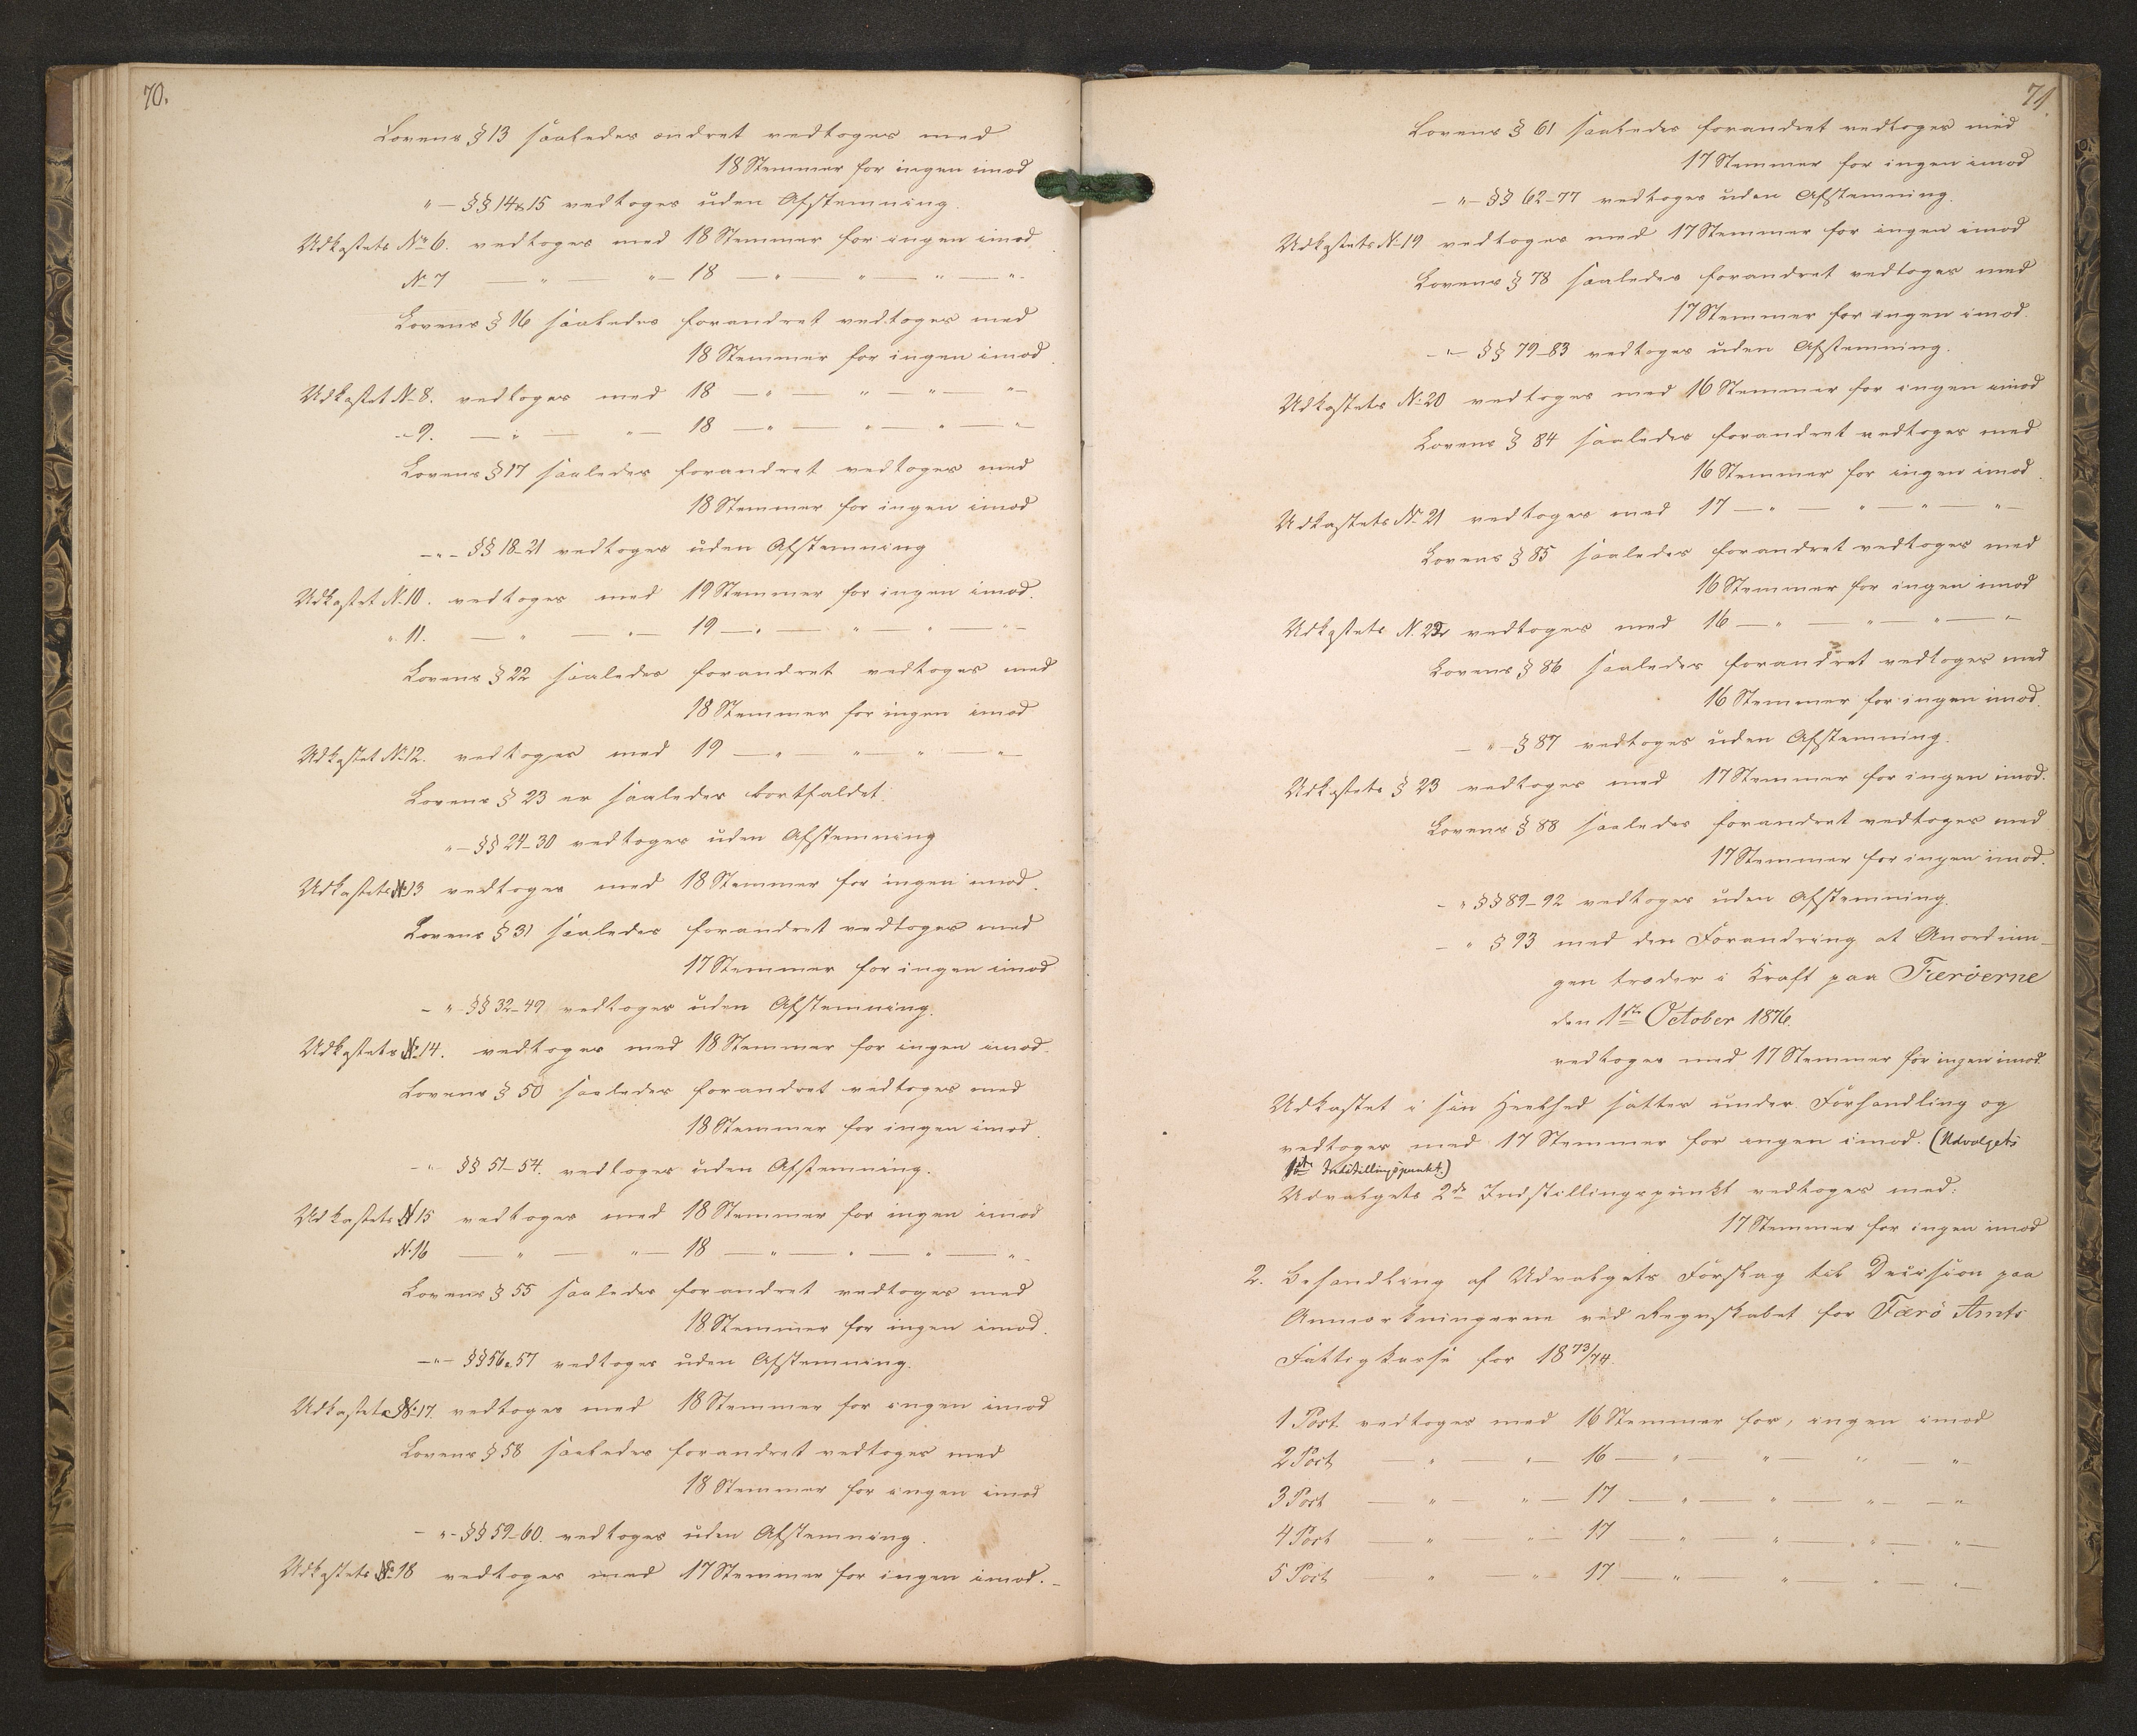 70.
Lovens § 13 saaledes ændret vedtoges med
18 Stemmer for ingen imod
" — §§ 14 & 15 vedtoges uden Afstemning.
Udkastets No 6. vedtoges med 18 Stemmer for ingen imod.
No 7 — " — " — 18 — " — " — " — " —
Lovens § 16 saaledes forandret vedtoges med
18 Stemmer for ingen imod.
Udkastet No 8. vedtoges med 18 — " — " — " — " —
" 9. — " — " — 18 — " — " — " — " —
Lovens § 17 saaledes forandret vedtoges med
18 Stemmer for ingen imod
— " — §§ 18-21 vedtoges uden Afstemning
Udkastet No 10. vedtoges med 19 Stemmer for ingen imod.
" 11. — " — " — 19 — " — " — " — " —
Lovens § 22 saaledes forandret vedtoges med
18 Stemmer for ingen imod
Udkastet No 12. vedtoges med 19 — " — " — " — " —
Lovens § 23 er saaledes bortfaldet.
" — §§ 24-30 vedtoges uden Afstemning
Udkastets No 13 vedtoges med 18 Stemmer for ingen imod.
Lovens § 31 saaledes forandret vedtoges med
17 Stemmer for ingen imod
— " — §§ 32-49 vedtoges uden Afstemning.
Udkastets No 14. vedtoges med 18 Stemmer for ingen imod.
Lovens § 50 saaledes forandret vedtoges med
18 Stemmer for ingen imod.
— " — §§ 51-54. vedtoges uden Afstemning.
Udkastets N 15 vedtoges med 18 Stemmer for ingen imod
No 16 — " — " — 18 — " — " — " — " —
Lovens § 55 saaledes forandret vedtoges med
18 Stemmer for ingen imod.
— " — §§ 56 & 57 vedtoges uden Afstemning.
Udkastets No 17. vedtoges med 18 Stemmer for ingen imod
Lovens § 58 saaledes forandret vedtoges med
18 Stemmer for ingen imod
— " — §§ 59-60. vedtoges uden Afstemning.
Udkastets No 18 vedtoges med 17 Stemmer for ingen imod. —
71.
Lovens § 61 saaledes forandret vedtoges med
17 Stemmer for ingen imod
— " — §§ 62-77 vedtoges uden Afstemning.
Udkastets No 19 vedtoges med 17 Stemmer for ingen imod
Lovens § 78 saaledes forandret vedtoges med
17 Stemmer for ingen imod.
— " — §§ 79-83 vedtoges uden Afstemning.
Udkastets No 20 vedtoges med 16 Stemmer for ingen imod
Lovens § 84 saaledes forandret vedtoges med
16 Stemmer for ingen imod.
Udkastets No 21 vedtoges med 17 — " — " — " — " —
Lovens § 85 saaledes forandret vedtoges med
16 Stemmer for ingen imod
Udkastets N. 22 vedtoges med 16 — " — " — " — " —
Lovens § 86 saaledes forandret vedtoges med
16 Stemmer for ingen imod.
— " — § 87 vedtoges uden Afstemning.
Udkastets § 23 vedtoges med 17 Stemmer for ingen imod.
Lovens § 88 saaledes forandret vedtoges med
17 Stemmer for ingen imod.
— " §§ 89-92 vedtoges uden Afstemning.
— " § 93 med den Forandring at Anordnin-
gen træder i Kraft paa Færöerne
den 1ste October 1876.
vedtoges med 17 Stemmer for ingen imod.
Udkastet i sin Heelhed sattes under Forhandling og
vedtoges med 17 Stemmer for ingen imod. (Udvalgets
1ste Indstillingspunkt.)
Udvalgets 2de Indstillingspunkt vedtoges med:
17 Stemmer for ingen imod
2. Behandling af Udvalgets Forslag til Decision paa
Anmærkningerne ved Regnskabet for Færö Amts
Fattigkasse for 18 73/74.
1 Post vedtoges med 16 Stemmer for, ingen imod
2 Post — " — " — 16 — " — " — " — " —
3 Post — " — " — 17 — " — " — " — " —
4 Post — " — " — 17 — " — " — " — " —
5 Post — " — " — 17 — " — " — " — " —